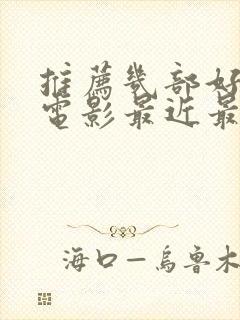 推薦幾部好
電影最近最
海口—烏魯木